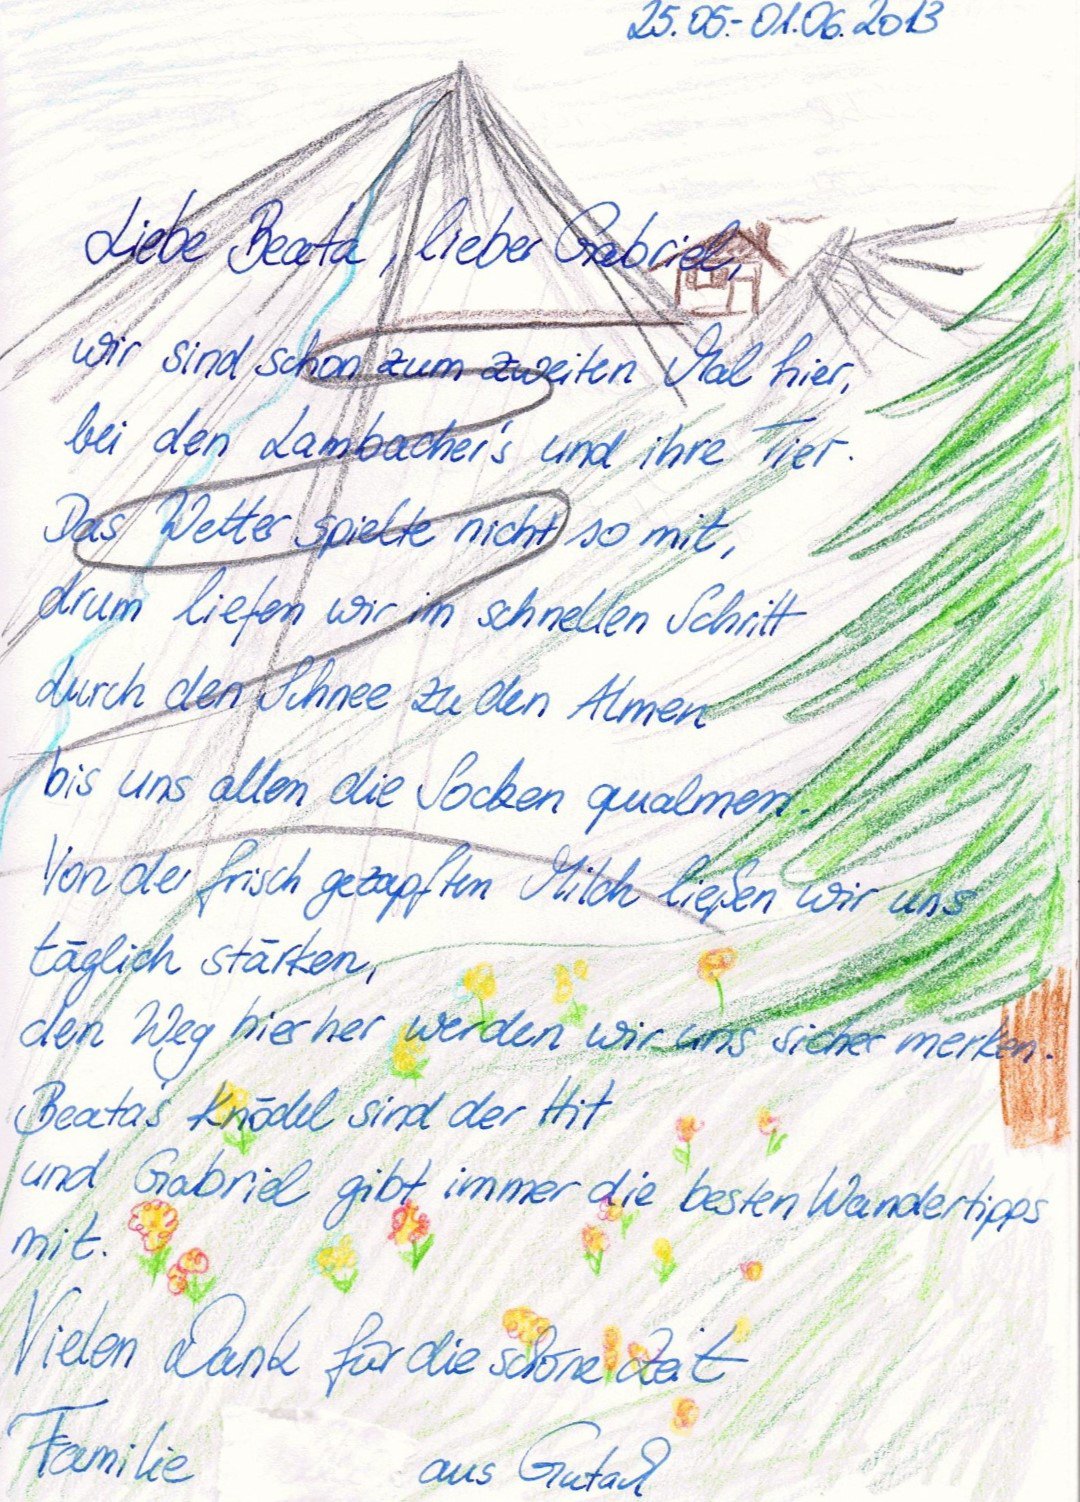 25.05.-01.06.2013
Liebe Beata, lieber Gabriel,
wir sind schon zum zweiten Mal hier,
bei den Lambacher's und ihre Tier.
Das Wetter spielte nicht so mit,
drum liefen wir im schnellen Schritt
durch den Schnee zu den Almen
bis uns allen die Socken qualmen.
Von der frisch gezapften Milch ließen wir uns
täglich stärken,
den Weg hierher werden wir uns sicher merken.
Beata's Knödel sind der Hit
und Gabriel gibt immer die besten Wandertipps
mit.
Vielen Dank für die schöne Zeit
Familie aus Gutach